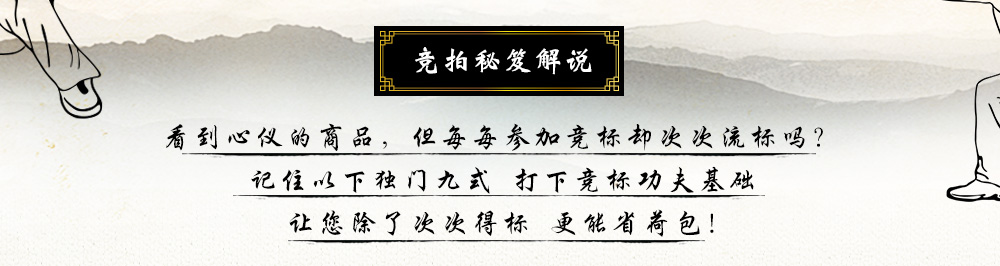 竞拍秘笈解说
看到心仪的商品，但每每参加竞标却次次流标吗？
记住以下独门九式 打下竞标功夫基础
让您除了次次得标 更能省荷包！